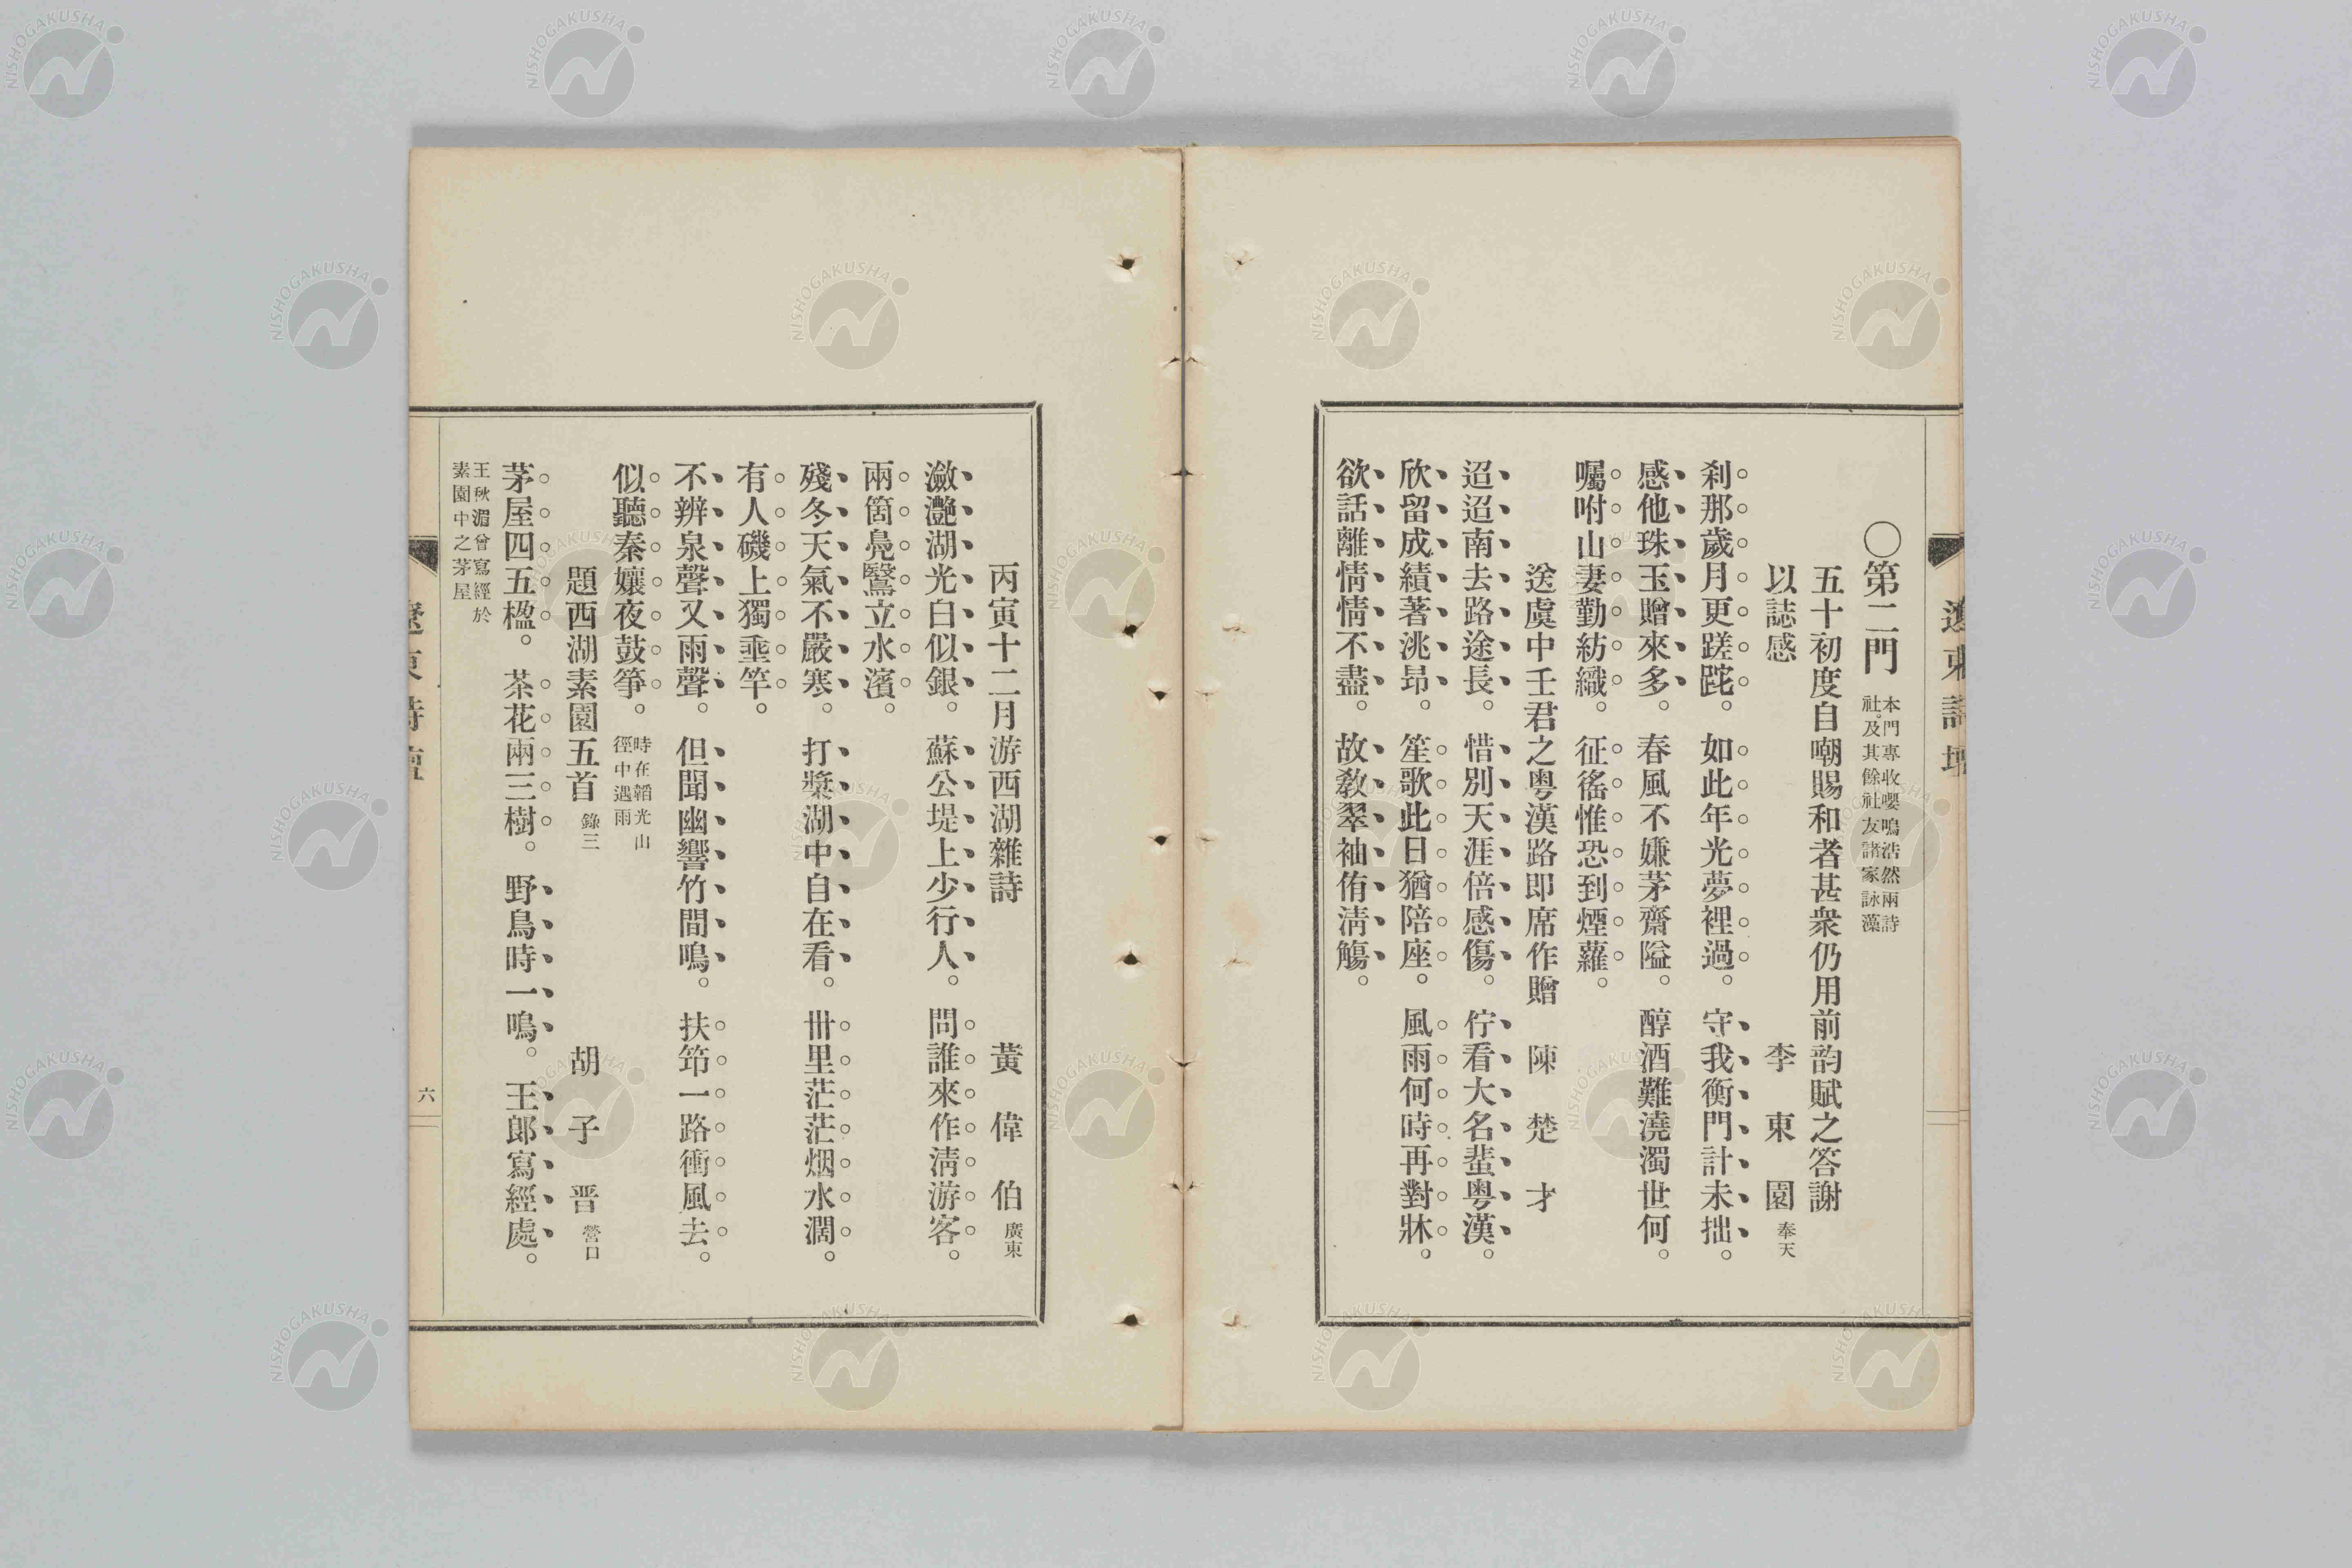 遼東詩壇
〇第二門 本門專收嚶鳴浩然兩詩
社。及其餘社友諸家詠藻
五十初度自嘲賜和者甚衆仍用前韵賦之答謝
以誌感 李東園 奉天
刹那歲月更蹉跎。如此年光夢裡過。守我衡門計未拙。
感他珠玉贈來多。春風不嫌茅齋隘。醇酒難澆濁世何。
囑咐山妻勤紡織。征徭惟恐到煙蘿。
送虞中壬君之粤漢路即席作贈 陳楚才
迢迢南去路途長。惜別天涯倍感傷。佇看大名蜚粤漢。
欣留成績著洮昂。笙歌此日猶陪座。風雨何時再對牀。
欲話離情情不盡。故敎翠袖侑淸觴。
丙寅十二月游西湖雜詩 黃偉伯 廣東
瀲灩湖光白似銀。蘇公堤上少行人。問誰來作淸游客。
兩箇鳧鷖立水濱。
殘冬天氣不嚴寒。打槳湖中自在看。卌里茫茫烟水濶。
有人磯上獨垂竿。
不辨泉聲又雨聲。但聞幽響竹間鳴。扶筇一路衝風去。
似聽秦孃夜鼓箏。 時在韜光山
徑中遇雨
題西湖素園五首 錄三 胡子晋 營口
茅屋四五楹。茶花兩三樹。野鳥時一鳴。王郎寫經處。
王秋湄曾寫經於
素園中之茅屋
遼東詩壇
六
NISHOGAKUSHA